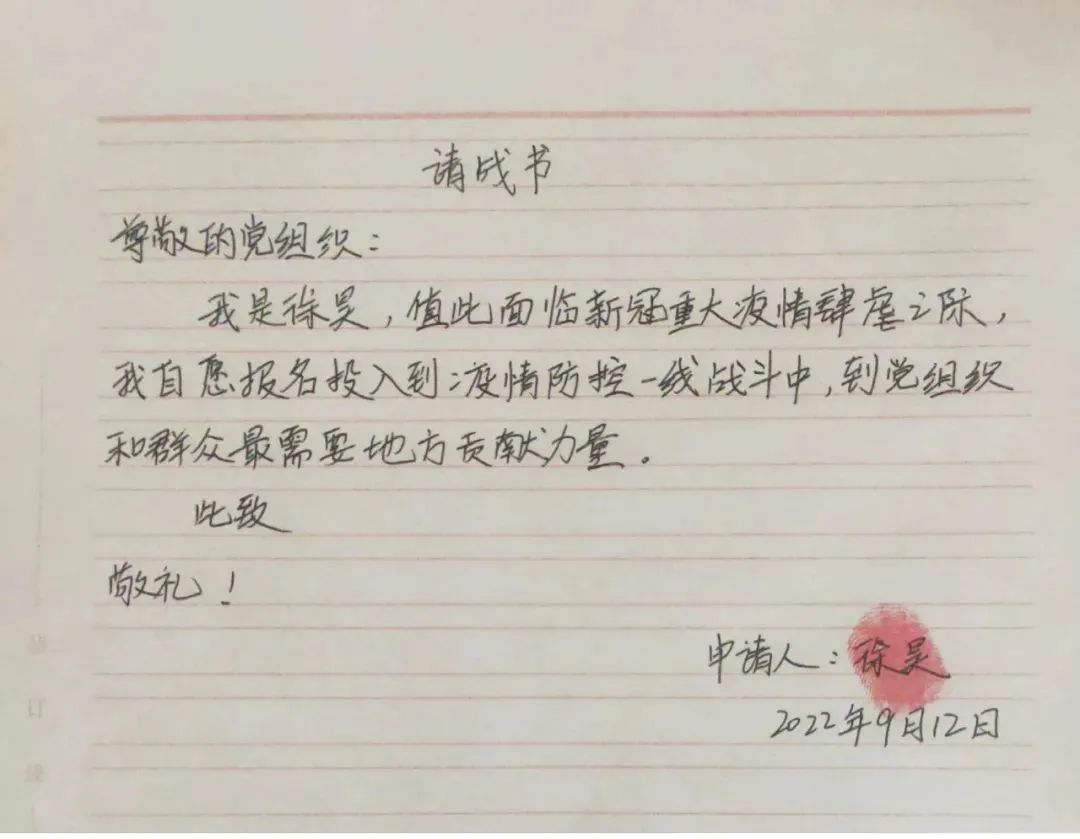 请战书
尊敬的党组织：
我是徐昊，值此面临新冠重大疫情肆虐之际，
我自愿报名投入到疫情防控一线战斗中，到党组织
和群众最需要地方贡献力量。
此致
敬礼！
申请人：徐昊
2022年9月12日